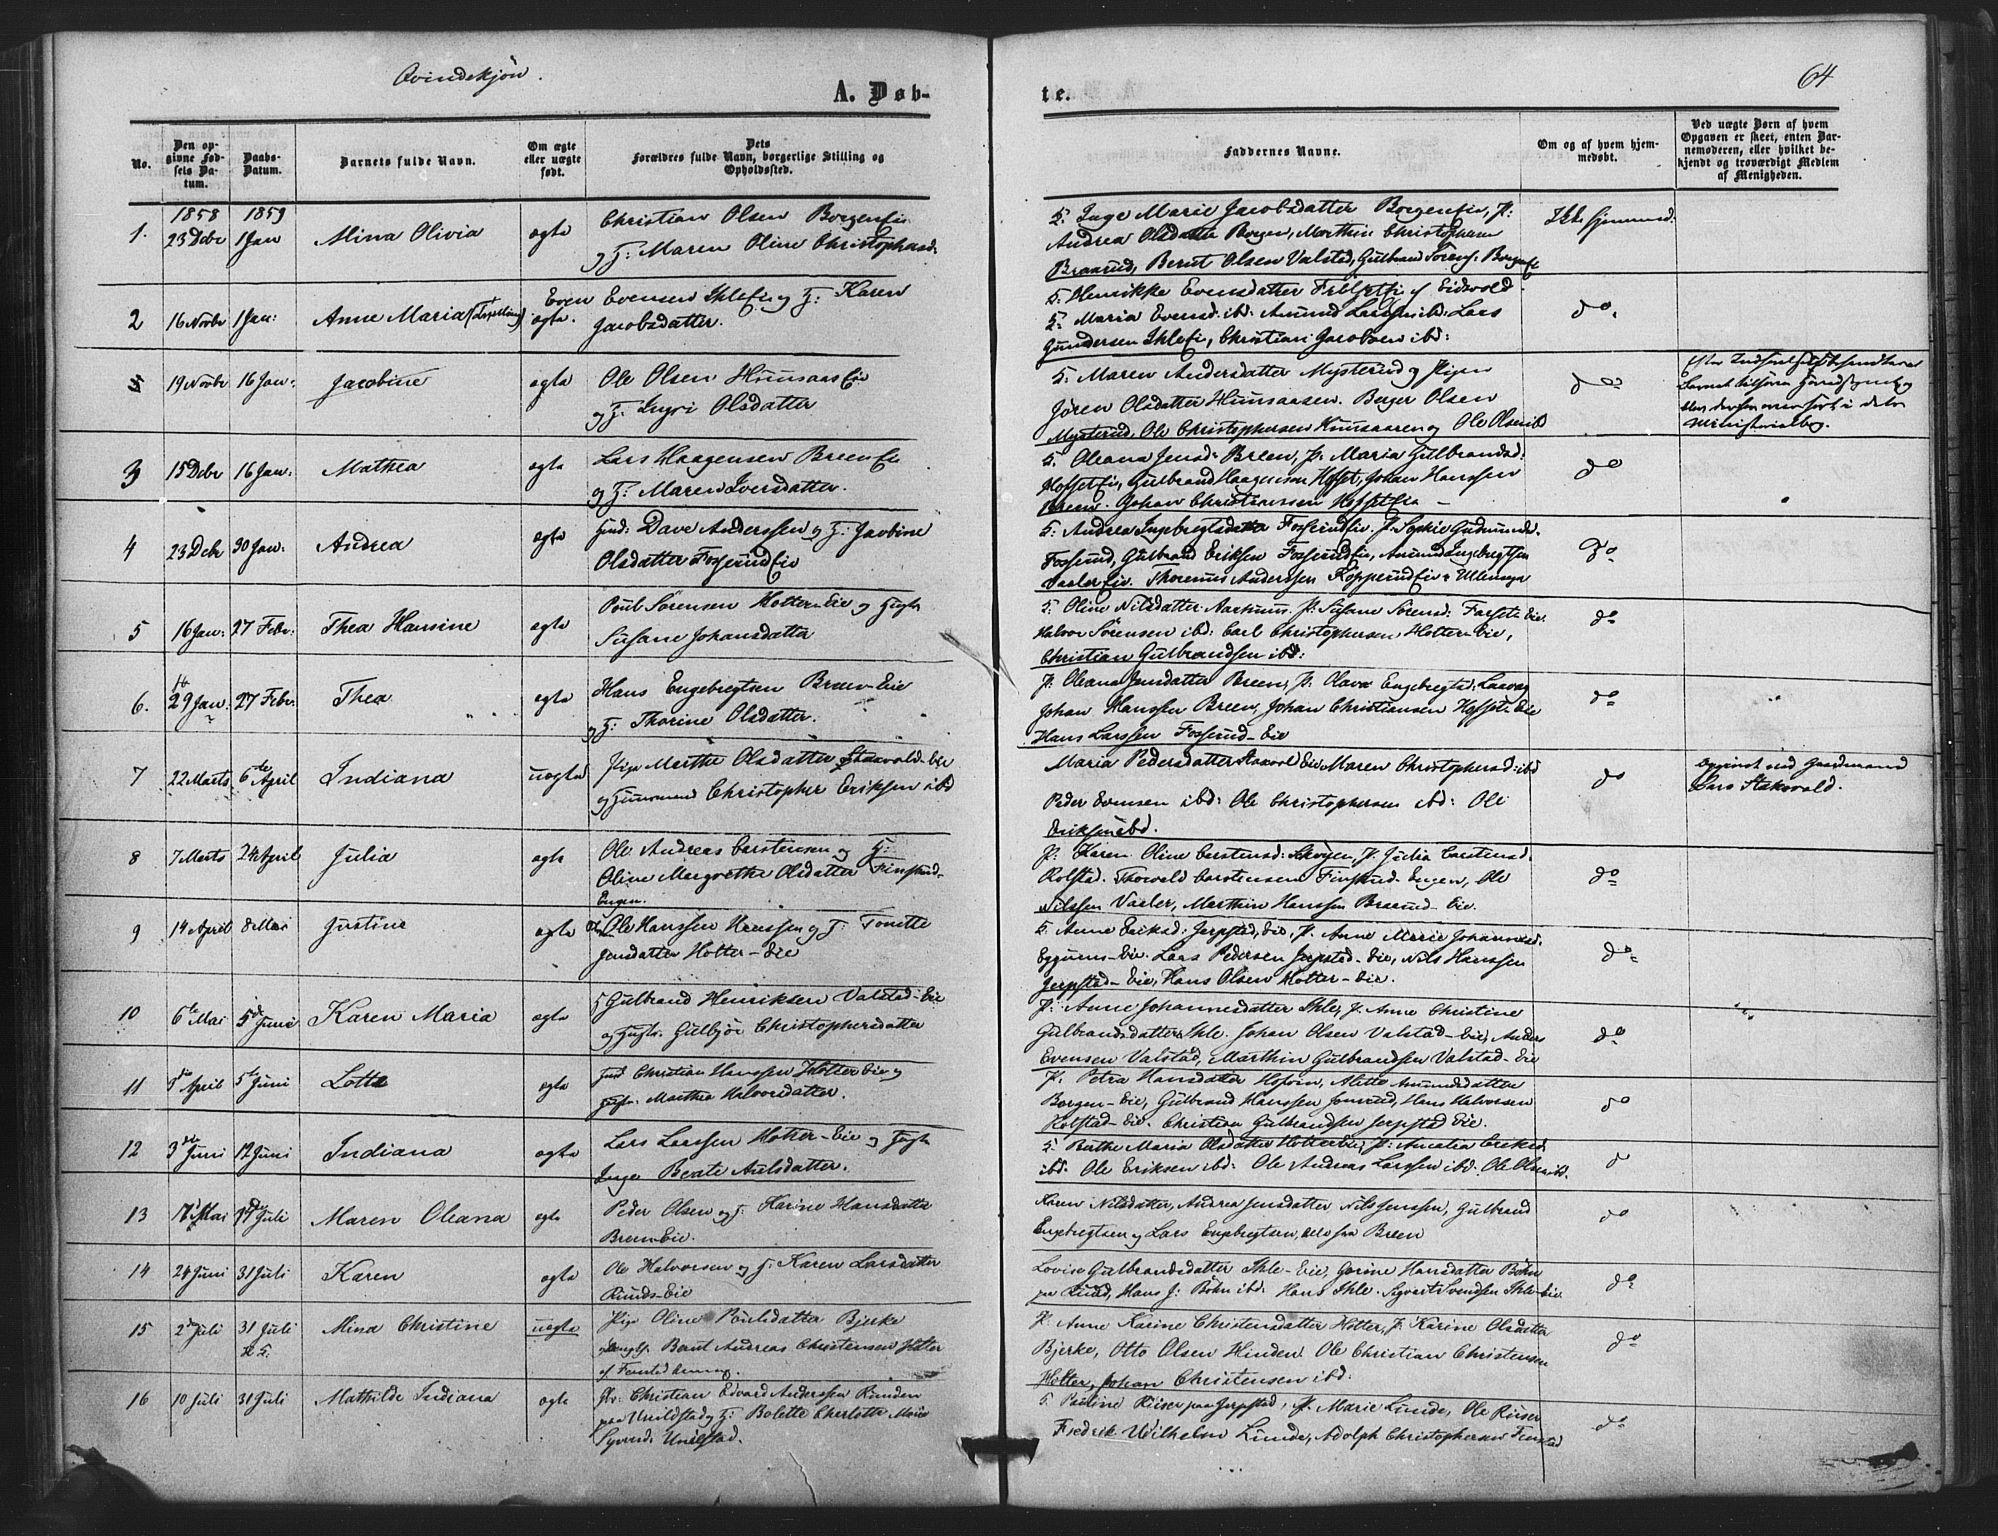 Qvindekjøn.
64
A. Døb-
te.
No.
Den op-
givne Fød-
sels Da-
tum.
Daabs-
Datum.
Barnets fulde Navn.
Om ægte
eller uægte
født.
Dets
Forældres fulde Navn, borgerlige Stilling og
Opholdssted.
Faddernes Navne.
Om og af hvem hjem-
medøbt.
Ved uægte Børn af hvem
Opgaven er skeet, enten Bar-
nemoderen, eller hvilket be-
kjendt og troværdigt Medlem
af Menigheden.
1858 1859
1. 23 Decbr 1 Jan Mina Olivia ægte
Christian Olsen Borgeneie
og H: Maren Oline Christophersd.
Inge Marie Jacobsdatter Borgeneie, P:
Andrea Olsdatter Borgen, Marthin Christophersen
Braarud, Bernt Olsen Valstad, Gulbrand Sørens: Borgeneie
Ikke hjemmed.
2 16 Novbr 1 Jan: Anne Maria (Tvilling) ægte.
Even Evensen Ihleeie og H: Karen
Jacobsdatter.
Henrikke Evensdatter af Eidsvold
Maria Evensd: ibd: Amund Larssen ibd: Lars
Gundersen Ihleeie, Christian Jacobsen ibd:
do.
19 Novbr 16 Jan: Jacobine ægte
Ole Olsen Huusaaseie
og H: Ingri Olsdatter
Maren Andersdatter Mysterud og Pigen
Jøren Olsdatter Huusaasen. Berger Olsen
Mysterud, Ole Christophersen Huusaasen og Ole Olsen ibd
do
3 15 Decbr 16 Jan: Mathea ægte
Lars Haagensen Breeneie
og H: Maren Iversdatter.
Oleana Jensd: Breen, P: Maria Gulbrandsd.
Hofseteie, Gulbrand Haagensen Hofset, Johan Hanssen
Breen. Johan Christiansen Hofseteie
do
4 23 Decbr 30 Jan: Andrea ægte
Huusm: Dave Anderssen og H: Jacobine
Olsdatter Fosserudeie
Andrea Ingebregtsdatter Fosserudeie. P: Sophie Gudmunds.
Fosserud, Gulbrand Eriksen Fosserudeie, Amund Ingebregtsen
Vaalereie. Thorenus Anderssen Kopperudeie i Ullensager
Do
5 16 Jan: 27 Febr: Thea Hansine ægte
Poul Sørensen Holter-Eie og Hustru
Susane Johansdatter
Oline Nilsdatter Aarhuus. P: Susane Sørensd:
Halvor Sørensen ibd: Carl Christophersen Holter-Eie,
Christian Gulbrandsen ibd:
do
6. 29 Jan: 27 Febr: Thea ægte
Hans Engebregtsen Breen-Eie
og H: Thorine Olsdatter.
P: Oleana Jensdatter Breen, P: Olava Engebregtsd:
Johan Hanssen Breen, Johan Christiansen Hofset-Eie
Hans Larssen Fosserud-Eie
do
7 22 Marts 6te April Indiana uægte
Pige Marthe Olsdatter Stakvold-Eie
og Huusmand Christopher Eriksen ibd
Maria Pedersdatter Stakvold Eie, Maren Christophersd: ibd
Peder Evensen ibd: Ole Christophersen ibd: Ole
Eriksen ibd.
do
Opgivet ved Gaardmand
Lars Stakvold.
8 7 Marts 24 April Julia ægte
Ole Andreas Carstensen og H:
Oline Margrethe Olsdatter Finstad-
Engen.
P: Karen Oline Carstensd: Skogen, P: Julia Carstensd.
Rolstad. Thorvald Carstensen Finstad-Engen, Ole
Nilssen Vaaler, Marthin Hanssen Braarud-Eie.
do
9 14 April 8 Mai Justine ægte
Ole Hanssen Hanssen og H: Tonette
Jensdatter Holter-Eie
Anne Eriksd: Jerpstad, Eie, P: Anne Marie Johannesd.
Eie. Lars Pedersen Jerpstad-Eie, Nils Hanssen
Jerpstad-Eie, Hans Olsen Holter-Eie.
do
10 6te Mai 5te Juni Karen Maria ægte
Gulbrand Henriksen Valstad-Eie
og Hust: Gulbjør Christophersdatter
P: Anne Johannesdatter Ihle, P: Anne Christine
Gulbrandsdatter Ihle. Johan Olsen Valstad-Eie, Anders
Evensen Valstad, Marthin Gulbrandsen Valstad-Eie
do
11 April 5te Juni Lotte ægte
Christian Hanssen Holter Eie og
Marthea Halvorsdatter.
P: Petra Hansdatter Hofvin, Alette Amundsdatter
Borgen-Eie, Gulbrand Hanssen, Hans Halvorsen
Kolstad-Eie. Christian Gulbrandsen Jerpstad Eie.
do
12 3de Juni 12 Juni Indiana ægte
Lars Larssen Holter-Eie og Hustru
Inger Beate Aulsdatter.
Berthe Maria Olsdatter Holter Eie, P: Amalia Eriksd.
ibd. Ole Eriksen ibd: Ole Andreas Larssen ibd: Ole Olsen ibd.
do
13 17 Mai 17de Juli Maren Oleana ægte
Peder Olsen og H: Karine Hansdatter
Breen-Eie.
Karen Nilsdatter, Andrea Jensdatter Nils Jenssen, Gulbrand
Engebregtsen og Lars Engebregtsen, alle fra Breen
do
14 24 Juni 31 Juli Karen ægte
Ole Halvorsen og H: Karen Larsdatter
Runds-Eie
Lovise Gulbrandsdatter Ihle-Eie, Gorine Hansdatter Bøhn
Rund, Hans J: Bøhn ibd: Hans Ihle. Sigvart Svendsen Ihle-Eie.
do
15 2 Juli 31 Juli Mina Christine uægte
Pige Oline Poulsdatter Bjerke
og Bernt Andreas Christensen Holter
P: Anne Karine Christensdatter Holter, P: Karine Olsdatter
Bjerke, Otto Olsen Hinden. Ole Christian Christensen
Holter, Johan Christensen ibd.
do
16 10 Juli 31 Juli Mathilde Indiana ægte
Christian Edvard Anderssen Runden
og H: Bolette Charlotte Marie
Syversd:
Pauline Riiser paa Jerpstad, P: Marie Lunde, Ole Riiser
Fredrik Wilhelm Lunde, Adolph Christophersen Finstad
do